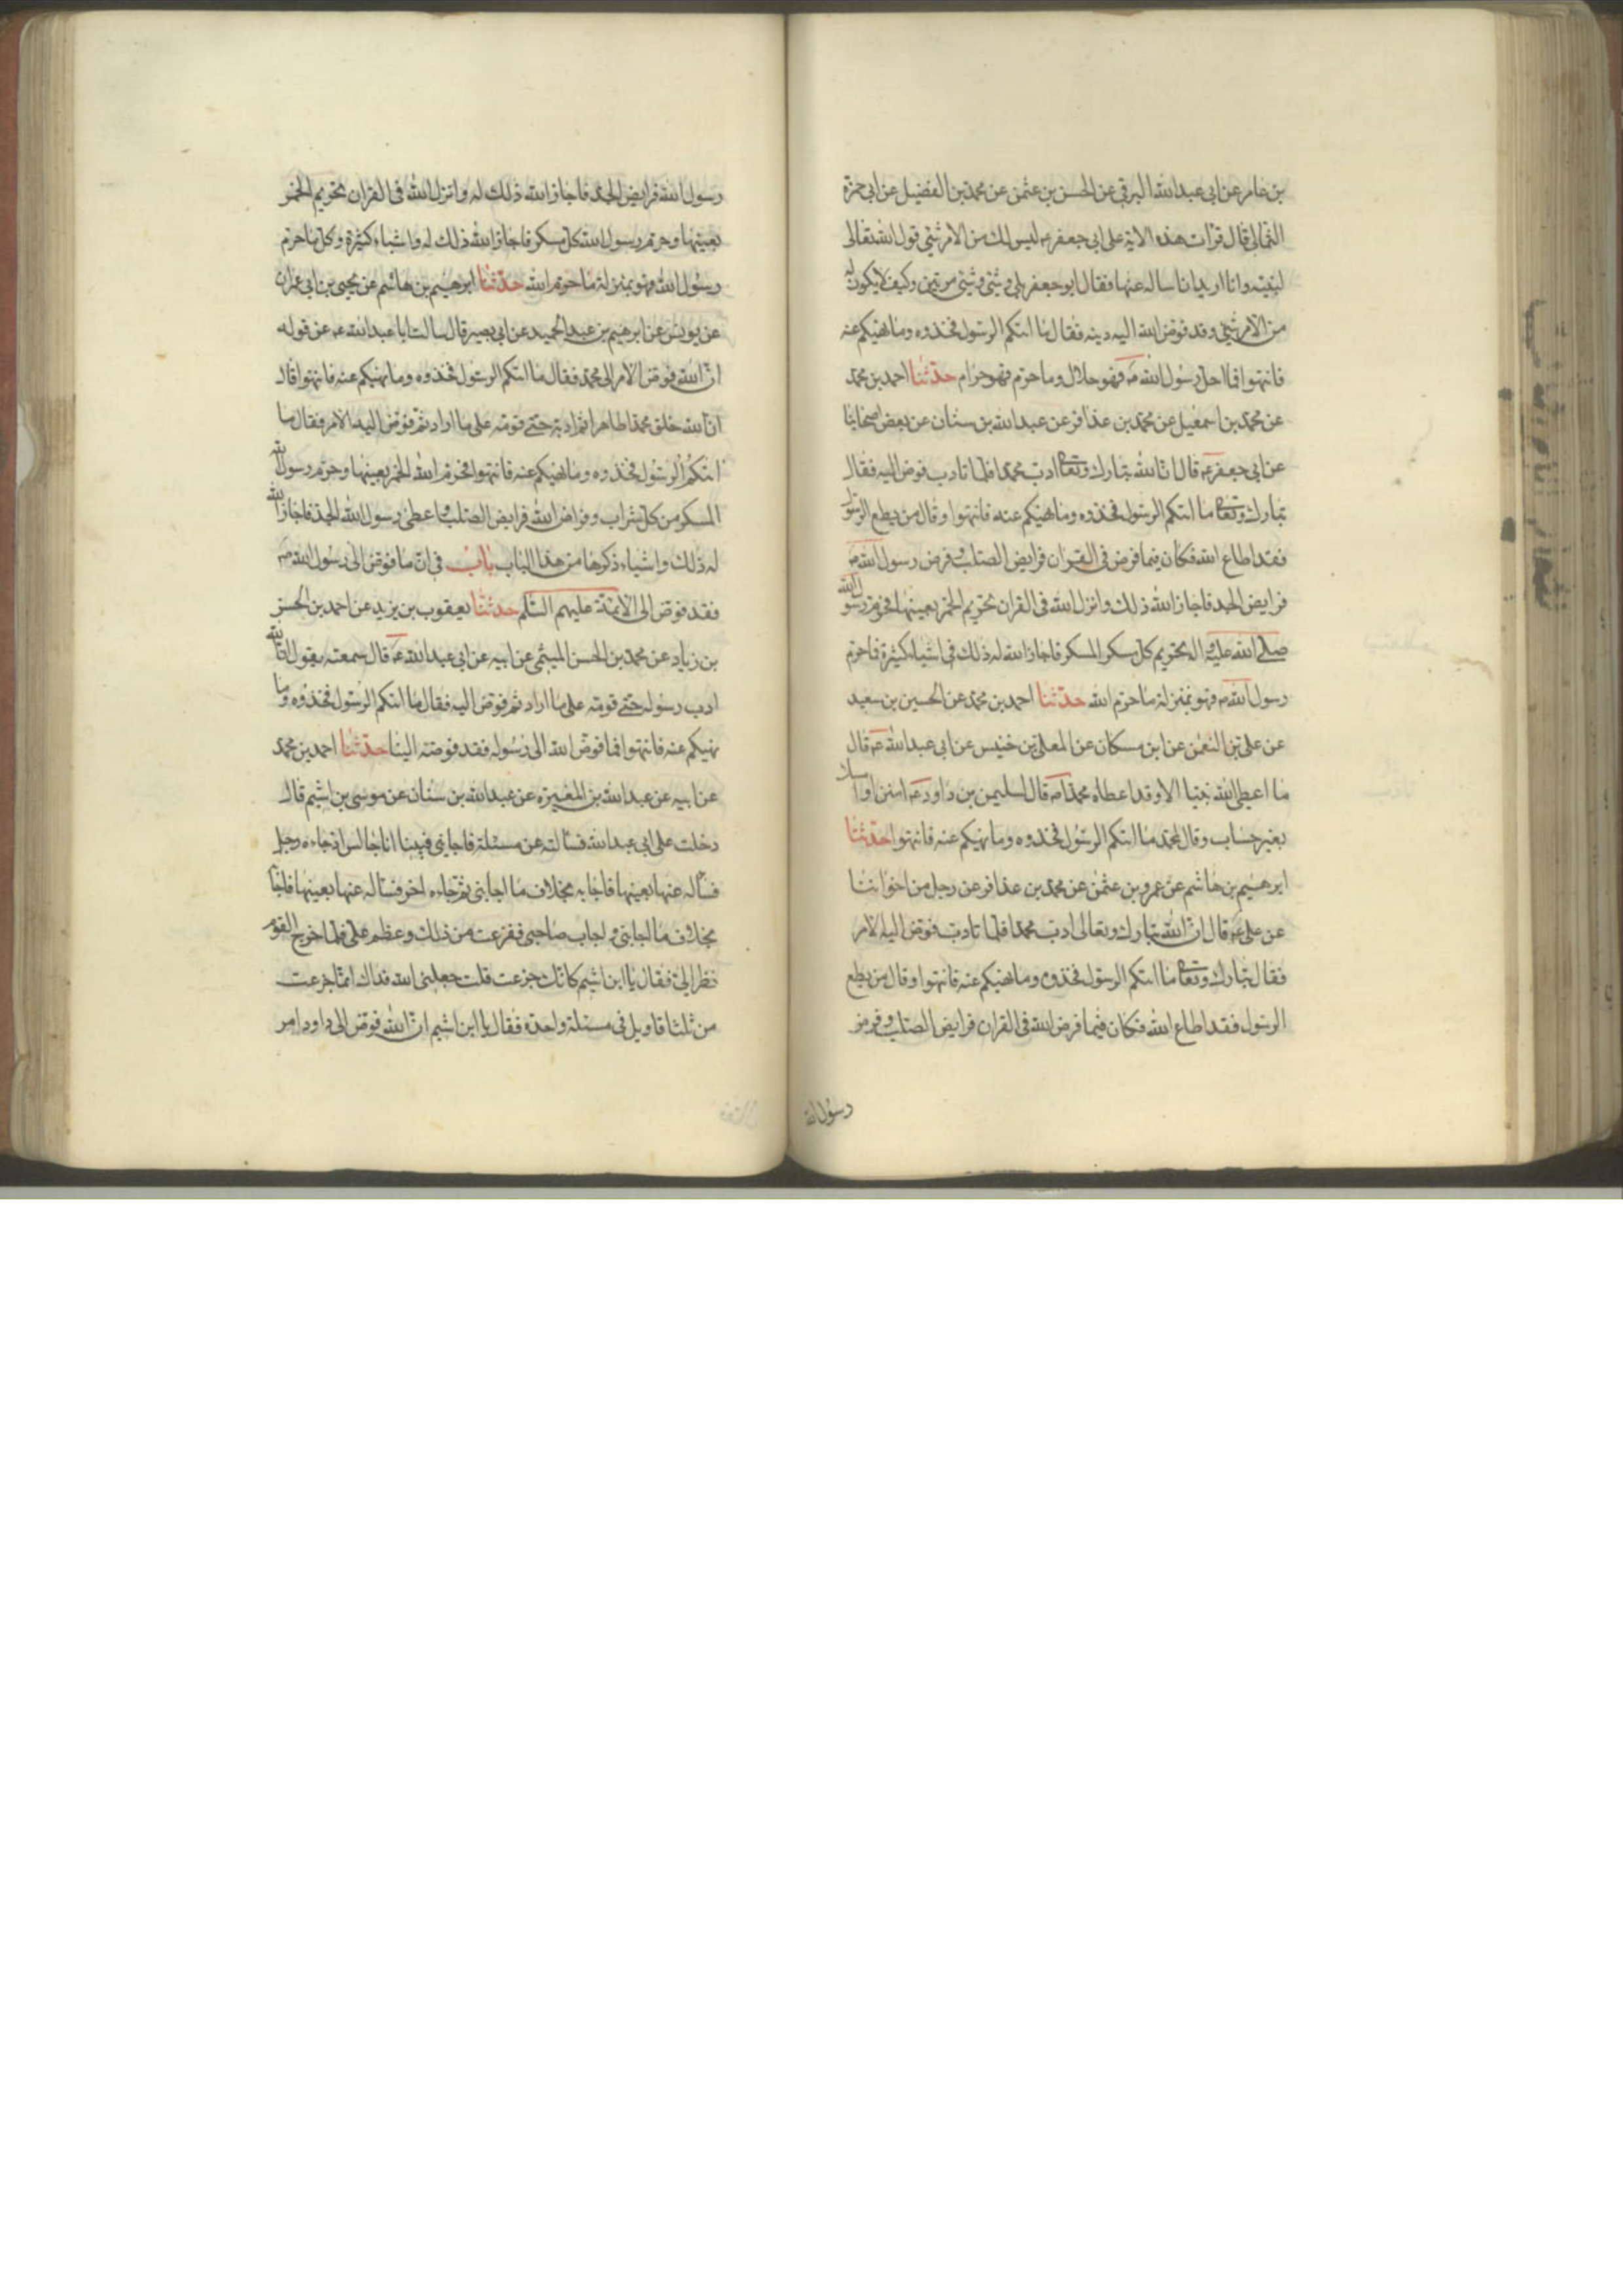 بن عامر عن ابى عبدالله البرقى عن الحسن بن عثمن عن محمد بن الفضيل عن ابى حمزة
الثمالى قال قرات هذه الاية على ابى جعفر ع ليس لك من الامر شئ قول الله تعالى
لنبيه وانا اريد ان اساله عنها فقال ابو جعفر بلى وشئ وشئ مرتين وكيف لا يكون له
من الامر شئ وقد فوض الله اليه دينه فقال ما اتيكم الرسول فخذوه وما نهيكم عنه
فانتهوا فما احل رسول الله ص فهو حلال وما حرم فهو حرام حدثنا احمد بن محمد
عن محمد بن اسمعيل عن محمد بن عذافر عن عبدالله بن سنان عن بعض اصحابنا
عن ابى جعفر ع قال ان الله تبارك وتعالى ادب محمدا فلما تادب فوض اليه فقال
تبارك وتعالى ما اتيكم الرسول فخذوه وما نهيكم عنه فانتهوا وقال من يطع الرسول
فقد اطاع الله فكان فيما فرض فى القران فرايض الصلب وفرض رسول الله ص
فرايض الجد فاجاز الله ذلك وانزل الله فى القران تحريم الخمر بعينها فحرم رسول الله
صلى الله عليه واله تحريم كل مسكر المسكر فاجاز الله له ذلك فى اشياء كثيرة فما حرم
رسول الله ص فهو بمنزلة ما حرم الله حدثنا احمد بن محمد عن الحسين بن سعيد
عن على بن النعمن عن ابن مسكان عن المعلى بن خنيس عن ابى عبدالله ع قال
ما اعطى الله نبيا الا وقد اعطاه محمدا ص قال لسليمن بن داود ع امنن او امسك
بغير حساب وقال لمحمد ما اتيكم الرسول فخذوه وما نهيكم عنه فانتهوا حدثنا
ابرهيم بن هاشم عن عمرو بن عثمن عن محمد بن عذافر عن رجل من اخواننا
عن على ع قال ان الله تبارك وتعالى ادب محمدا فلما تادب فوض اليه الامر
فقال تبارك وتعالى ما اتيكم الرسول فخذوه وما نهيكم عنه فانتهوا وقال من يطع
الرسول فقد اطاع الله فكان فيما فرض الله فى القران فرايض الصلب وفرض
رسول الله
رسول الله فرايض الجد فاجاز الله ذلك له وانزل الله فى القران تحريم الخمر
بعينها وحرم رسول الله كل مسكر فاجاز الله ذلك له واشياء كثيرة وكل ما حرم
رسول الله فهو بمنزلة ما حرم الله حدثنا ابرهيم بن هاشم عن يحيى بن ابى عمران
عن يونس عن ابرهيم بن عبد الحميد عن ابى بصير قال سالت ابا عبدالله ع عن قوله
ان الله فوض الامر الى محمد فقال ما اتيكم الرسول فخذوه وما نهيكم عنه فانتهوا قال
ان الله خلق محمدا طاهرا ثم ادبه حتى قومه على ما اراد ثم فوض اليه الامر فقال ما
اتيكم الرسول فخذوه وما نهيكم عنه فانتهوا فحرم الله الخمر بعينها وحرم رسول الله
المسكر من كل شراب وفرض الله فرايض الصلب واعطى رسول الله الجد فاجاز الله
له ذلك واشياء ذكرها من هذا الباب باب فى ان ما فوض الى رسول الله ص
فقد فوض الى الائمة عليهم السلم حدثنا يعقوب بن يزيد عن احمد بن الحسن
بن زياد عن محمد بن الحسن الميثمى عن ابيه عن ابى عبدالله ع قال سمعته يقول ان الله
ادب رسوله حتى قومه على ما اراد ثم فوض اليه فقال ما اتيكم الرسول فخذوه وما
نهيكم عنه فانتهوا فما فوض الله الى رسوله فقد فوضه الينا حدثنا احمد بن محمد
عن ابيه عن عبدالله بن المغيرة عن عبدالله بن سنان عن موسى بن اشيم قال
دخلت على ابى عبدالله فسالته عن مسئلة فاجابنى فبينا انا جالس اذ جاءه رجل
فساله عنها بعينها فاجابه بخلاف ما اجابنى ثم جاءه اخر فساله عنها بعينها فاجا
بخلاف ما اجابنى واجاب صاحبى ففزعت من ذلك وعظم على فلما خرج القوم
نظر الى فقال يا ابن اشيم كانك جزعت قلت جعلنى الله فداك انما جزعت
من ثلث اقاويل فى مسئلة واحدة فقال يا ابن اشيم ان الله فوض الى داود امر